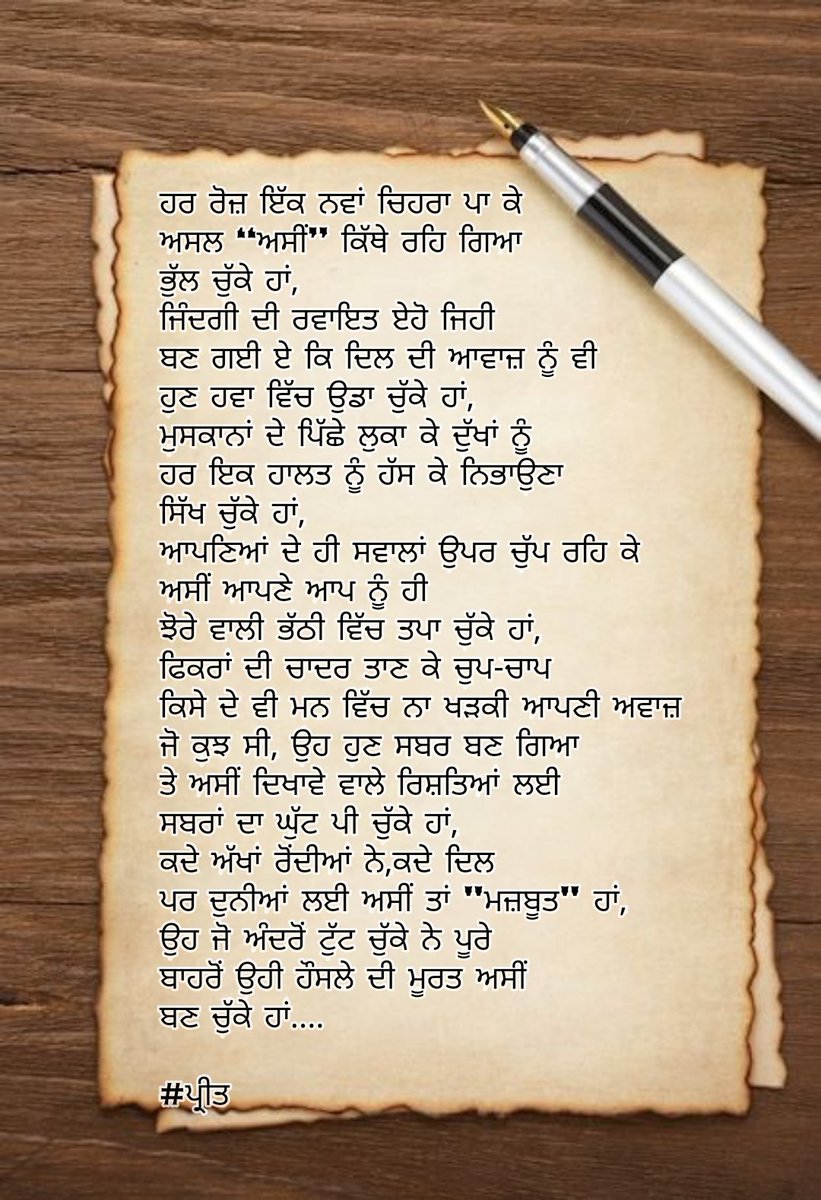 ਹਰ ਰੋਜ਼ ਇੱਕ ਨਵਾਂ ਚਿਹਰਾ ਪਾ ਕੇ
ਅਸਲ “ਅਸੀਂ” ਕਿੱਥੇ ਰਹਿ ਗਿਆ
ਭੁੱਲ ਚੁੱਕੇ ਹਾਂ,
ਜਿੰਦਗੀ ਦੀ ਰਵਾਇਤ ਏਹੋ ਜਿਹੀ
ਬਣ ਗਈ ਏ ਕਿ ਦਿਲ ਦੀ ਆਵਾਜ਼ ਨੂੰ ਵੀ
ਹੁਣ ਹਵਾ ਵਿੱਚ ਉਡਾ ਚੁੱਕੇ ਹਾਂ,
ਮੁਸਕਾਨਾਂ ਦੇ ਪਿੱਛੇ ਲੁਕਾ ਕੇ ਦੁੱਖਾਂ ਨੂੰ
ਹਰ ਇਕ ਹਾਲਤ ਨੂੰ ਹੱਸ ਕੇ ਨਿਭਾਉਣਾ
ਸਿੱਖ ਚੁੱਕੇ ਹਾਂ,
ਆਪਣਿਆਂ ਦੇ ਹੀ ਸਵਾਲਾਂ ਉਪਰ ਚੁੱਪ ਰਹਿ ਕੇ
ਅਸੀਂ ਆਪਣੇ ਆਪ ਨੂੰ ਹੀ
ਝੋਰੇ ਵਾਲੀ ਭੱਠੀ ਵਿੱਚ ਤਪਾ ਚੁੱਕੇ ਹਾਂ,
ਫਿਕਰਾਂ ਦੀ ਚਾਦਰ ਤਾਣ ਕੇ ਚੁਪ-ਚਾਪ
ਕਿਸੇ ਦੇ ਵੀ ਮਨ ਵਿੱਚ ਨਾ ਖੜਕੀ ਆਪਣੀ ਅਵਾਜ਼
ਜੋ ਕੁਝ ਸੀ, ਉਹ ਹੁਣ ਸਬਰ ਬਣ ਗਿਆ
ਤੇ ਅਸੀਂ ਦਿਖਾਵੇ ਵਾਲੇ ਰਿਸ਼ਤਿਆਂ ਲਈ
ਸਬਰਾਂ ਦਾ ਘੁੱਟ ਪੀ ਚੁੱਕੇ ਹਾਂ,
ਕਦੇ ਅੱਖਾਂ ਰੋਂਦੀਆਂ ਨੇ,ਕਦੇ ਦਿਲ
ਪਰ ਦੁਨੀਆਂ ਲਈ ਅਸੀਂ ਤਾਂ "ਮਜ਼ਬੂਤ" ਹਾਂ,
ਉਹ ਜੋ ਅੰਦਰੋਂ ਟੁੱਟ ਚੁੱਕੇ ਨੇ ਪੂਰੇ
ਬਾਹਰੋਂ ਉਹੀ ਹੌਸਲੇ ਦੀ ਮੂਰਤ ਅਸੀਂ
ਬਣ ਚੁੱਕੇ ਹਾਂ....
#ਪ੍ਰੀਤ